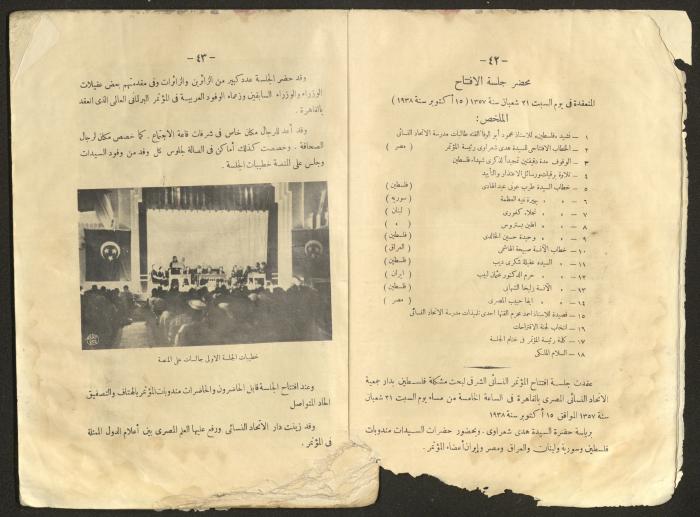 — ٤٢ —
محضر جلسة الافتتاح
المنعقدة في يوم السبت ٢١ شعبان سنة ١٣٥٧ ( ١٥ أكتوبر سنة ١٩٣٨ )
الملخص :
١ — نشيد «فلسطين» للاستاذ محمود أبو الوفا القته طالبات مدرسة الاتحاد النسائى
٢ — الخطاب الافتتاحى للسيدة هدى شعراوى رئيسة المؤتمر ( مصر )
٣ — الوقوف مدة دقيقتين تمجيداً لذكرى شهداء فلسطين
٤ — تلاوة برقيات ورسائل الاعتذار والتأييد
٥ — خطاب السيدة طرب عونى عبد الهادى ( فلسطين )
٦ — » » بهيرة نبيه العظمة ( سورية )
٧ — » » نجلاء كفورى ( لبنان )
٨ — » » افلين بسترس ( » )
٩ — » » وحيدة حسين الخالدى ( فلسطين )
١٠ — خطاب الآنسة صبيحة الهاشمى ( العراق )
١١ — » السيدة عقيلة شكرى ديب ( فلسطين )
١٢ — » حرم الدكتور عثمان لبيب ( ايران )
١٣ — » الآنسة زليخا الشهابى ( فلسطين )
١٤ — » » ايفا حبيب المصرى ( مصر )
١٥ — قصيدة للاستاذ احمد محرم القتها احدى تلميذات مدرسة الاتحاد النسائى
١٦ — انتخاب لجنة الاقتراحات
١٧ — كلمة رئيسة المؤتمر فى ختام الجلسة
١٨ — السلام الملكى
عقدت جلسة افتتاح المؤتمر النسائى الشرقى لبحث مشكلة فلسطين بدار جمعية
الاتحاد النسائى المصرى بالقاهرة فى الساعة الخامسة من مساء يوم السبت ٢١ شعبان
سنة ١٣٥٧ الموافق ١٥ أكتوبر سنة ١٩٣٨
برياسة حضرة السيدة هدى شعراوى . وبحضور حضرات السيدات مندوبات
فلسطين وسورية ولبنان والعراق ومصر وإيران أعضاء المؤتمر .
— ٤٣ —
وقد حضر الجلسة عدد كبير من الزائرين والزائرات وفى مقدمتهم بعض عقيلات
الوزراء والوزراء السابقين وزعماء الوفود العربية فى المؤتمر البرلمانى العالمى الذى انعقد
بالقاهرة .
وقد أعد للرجال مكان خاص فى شرفات قاعة الاجتماع . كما خصص مكان لرجال
الصحافة . وخصصت كذلك أماكن فى الصالة لجلوس كل وفد من وفود السيدات
وجلس على المنصة خطيبات الجلسة .
خطيبات الجلسة الاولى جالسات على المنصة
وعند افتتاح الجلسة قابل الحاضرون والحاضرات مندوبات المؤتمر بالهتاف والتصفيق
الحاد المتواصل
وقد زينت دار الاتحاد النسائى . ورفع عليها العلم المصرى بين أعلام الدول الممثلة
فى المؤتمر .